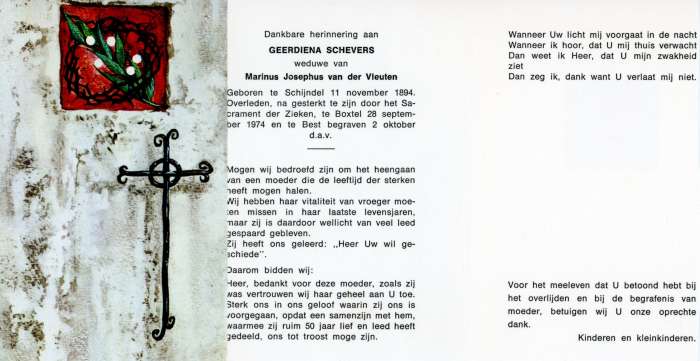 Dankbare herinnering aan
GEERDIENA SCHEVERS
weduwe van
Marinus Josephus van der Vleuten
Geboren te Schijndel 11 november 1894.
Overleden, na gesterkt te zijn door het Sa-
crament der Zieken, te Boxtel 28 septem-
ber 1974 en te Best begraven 2 oktober
d.a.v.
Mogen wij bedroefd zijn om het heengaan
van een moeder die de leeftijd der sterken
heeft mogen halen.
Wij hebben haar vitaliteit van vroeger moe-
ten missen in haar laatste levensjaren,
maar zij is daardoor wellicht van veel leed
gespaard gebleven.
Zij heeft ons geleerd: ,,Heer Uw wil ge-
schiede".
Daarom bidden wij:
Heer, bedankt voor deze moeder, zoals zij
was vertrouwen wij haar geheel aan U toe.
Sterk ons in ons geloof waarin zij ons is
voorgegaan, opdat een samenzijn met hem,
waarmee zij ruim 50 jaar lief en leed heeft
gedeeld, ons tot troost moge zijn.
Wanneer Uw licht mij voorgaat in de nacht
Wanneer ik hoor, dat U mij thuis verwacht
Dan weet ik Heer, dat U mijn zwakheid
ziet
Dan zeg ik, dank want U verlaat mij niet.
Voor het meeleven dat U betoond hebt bij
het overlijden en bij de begrafenis van
moeder, betuigen wij U onze oprechte
dank.
Kinderen en kleinkinderen.